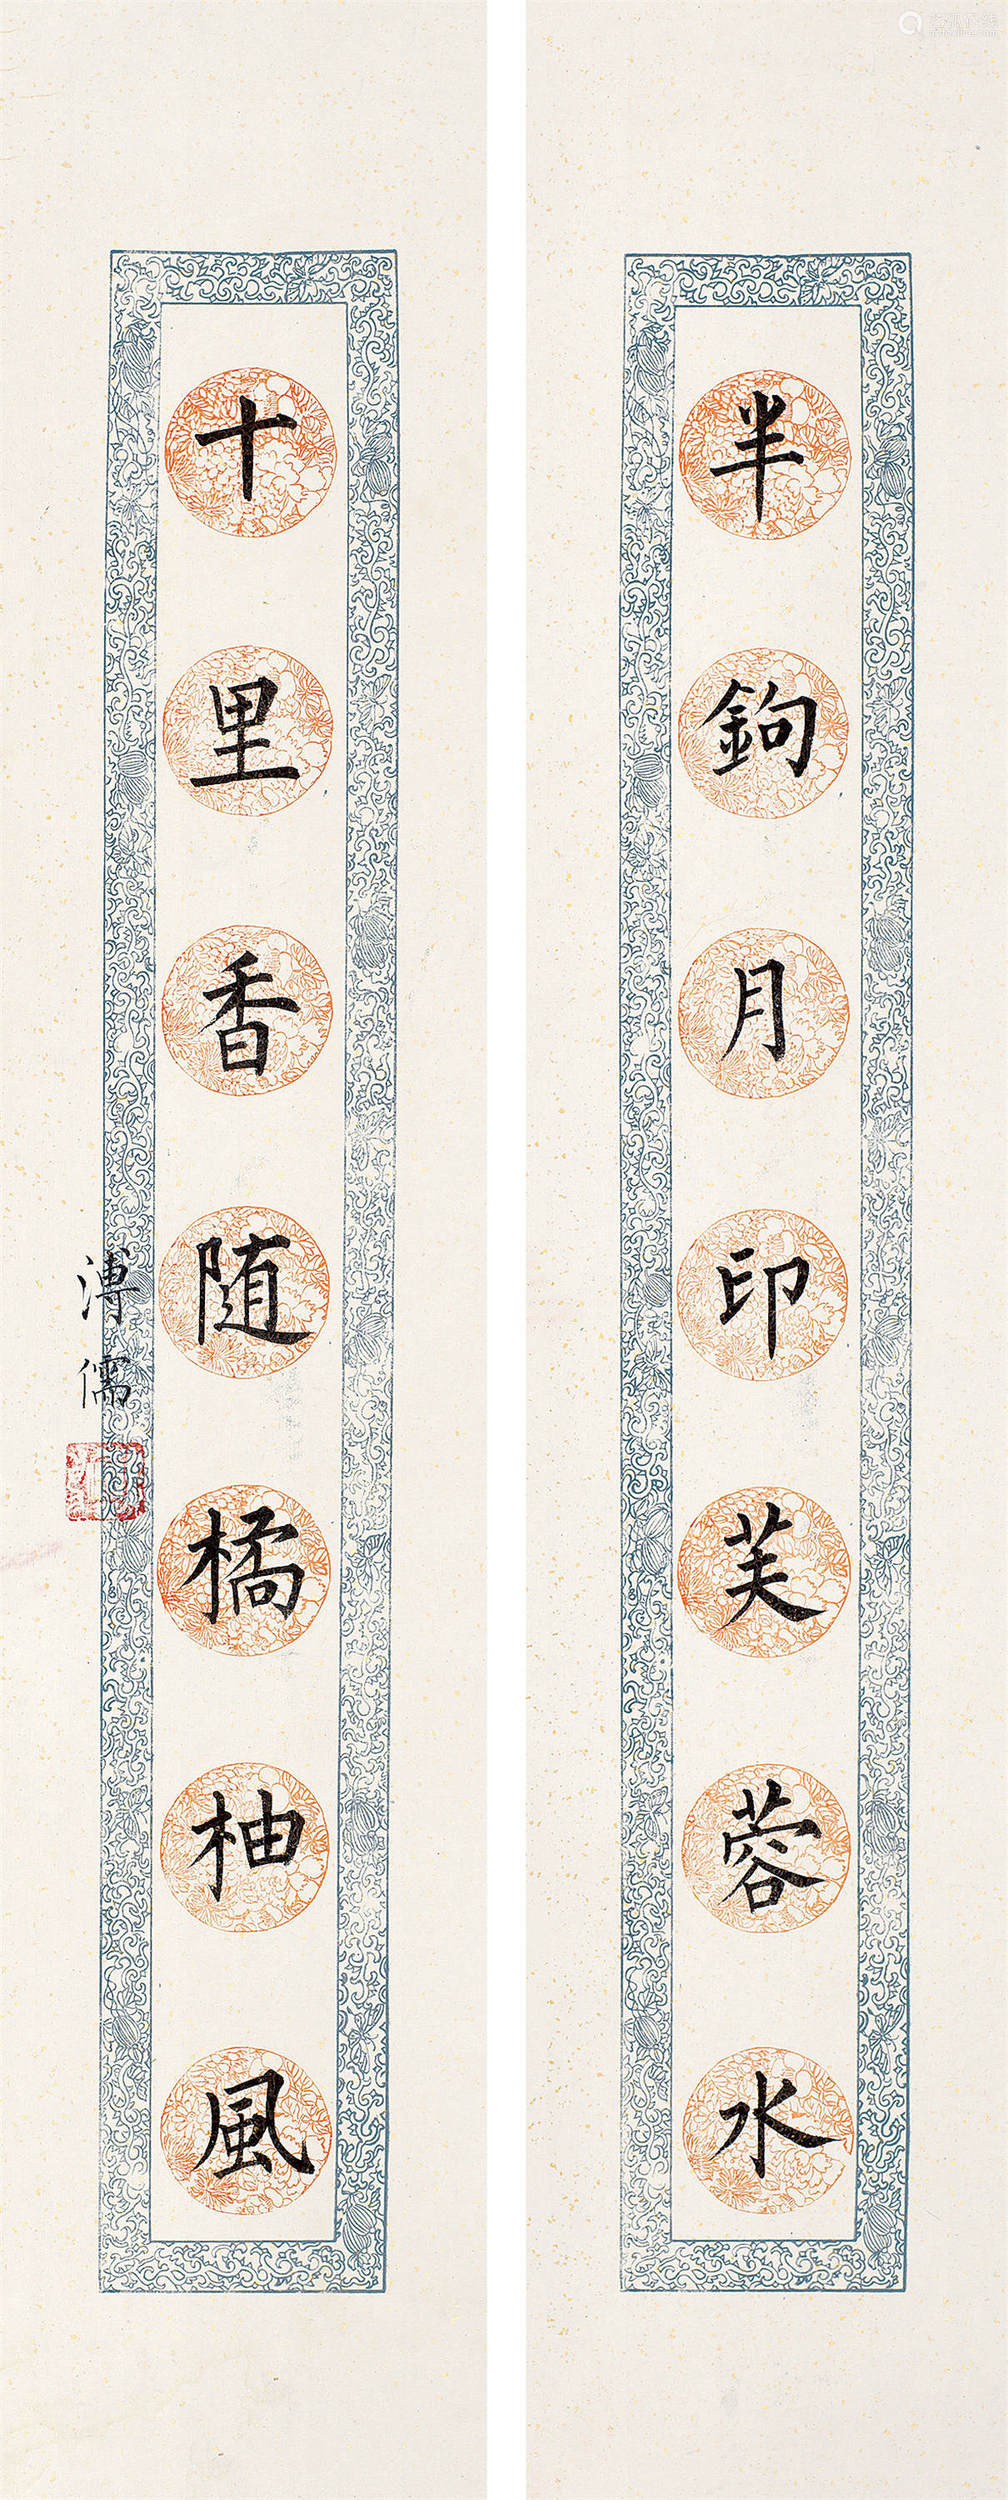 半鉤月印芙蓉水
十里香随橘柚風
溥儒